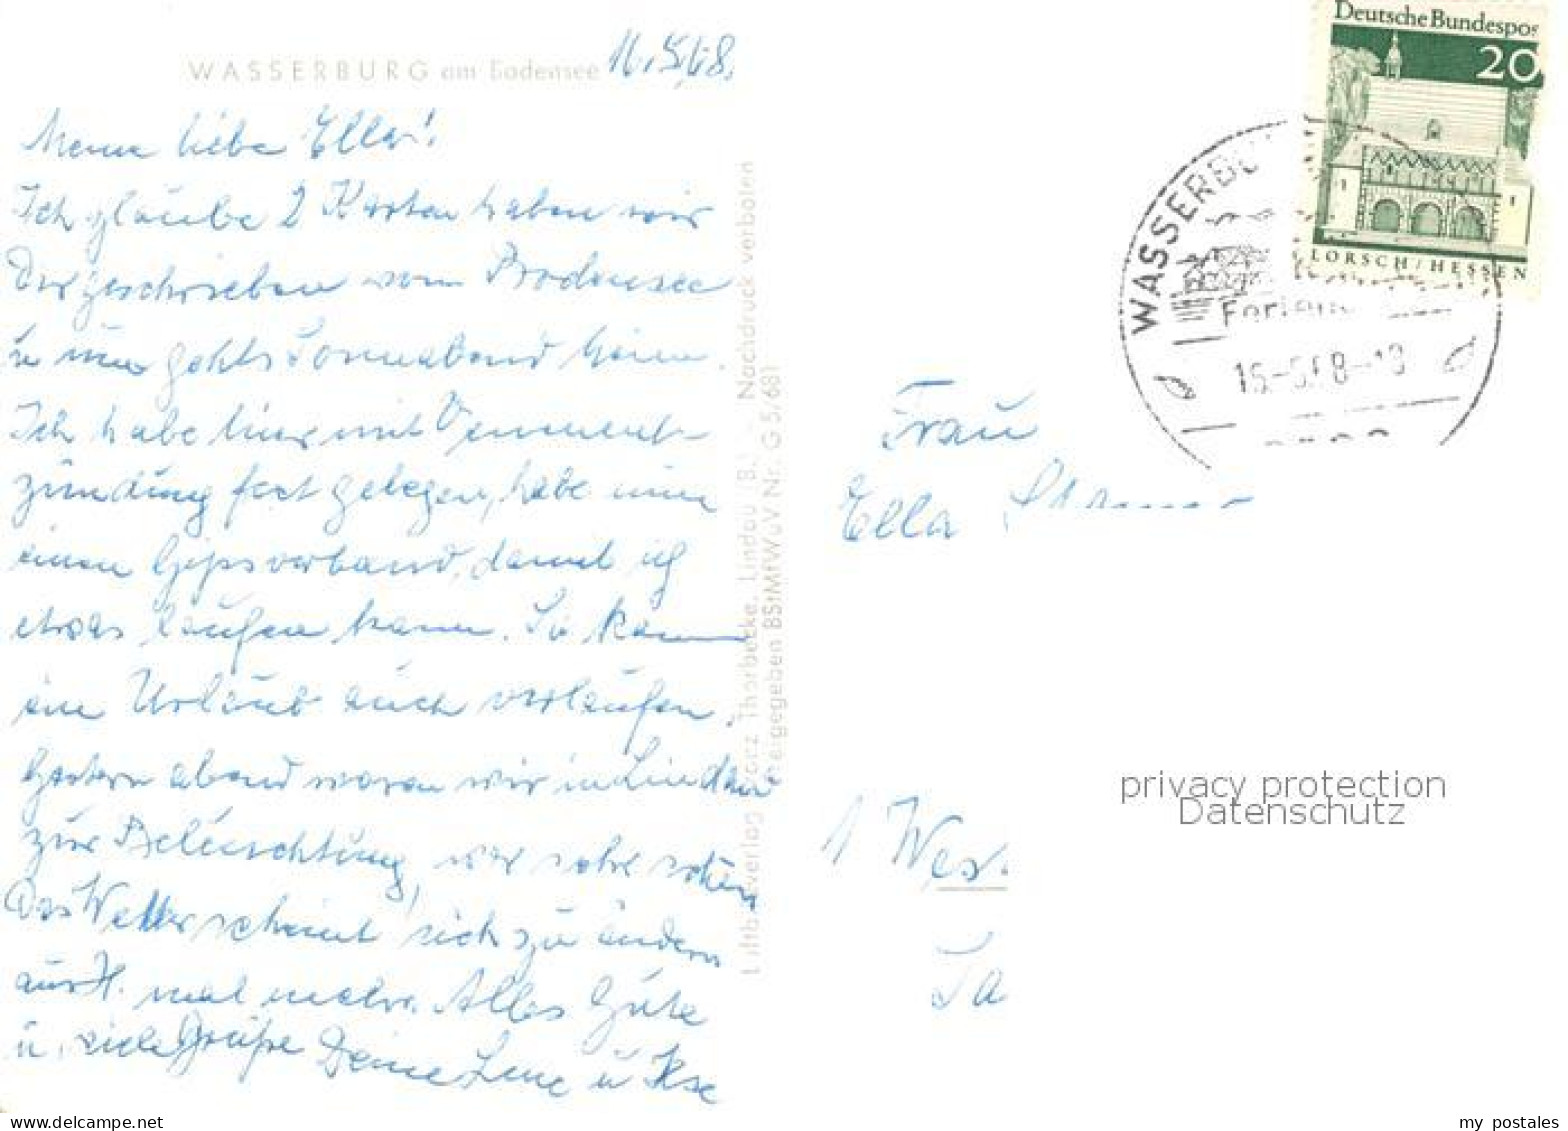 WASSERBURG am Bodensee 16.5.68.
Meine liebe Ella!
Ich glaube 2 Karten haben wir
Dir geschrieben vom Bodensee
u nun gehts Sonnabend heim.
Ich habe hier mit Venenent-
zündung fest gelegen, habe nun
einen Gipsverband, damit ich
etwas laufen kann. So kann
ein Urlaub auch verlaufen.
Gestern abend waren wir in Lindau
zur Beleuchtung, war sehr schön
Das Wetter scheint sich zu ändern
aus H. mal mehr. Alles Gute
u. viele Grüße Deine Lene u Ilse
Luftbildverlag Franz Thorbecke, Lindau (B.) - Nachdruck verboten
Freigegeben BStMfWuV Nr. G 5/681
Deutsche Bundespos
20
LORSCH/HESSEN
WASSERBU
Ferien
Frau
Ella
1 Wes
Ta
privacy protection
Datenschutz
www.delcampe.net
my_postales